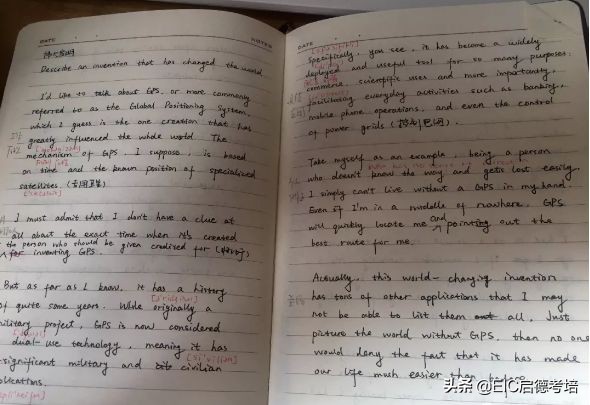 DATE
NOTES
Describe an invention that has changed the world
I'd like to talk about GPS, or more commonly
referred to as the Global Positioning System,
which I guess is the one creation that has
greatly influenced the whole world. The
mechanism of GPS, I suppose, is based
on time and the known position of specialized
satellites
I must admit that I don't have a clue at
all about the exact time when it's created
the person who should be given credised for
for inventing GPS.
But as far as I know, it has a history
of quite some years. While originally a
military project, GPS is now considered
dual-use technology, meaning it has
significant military and civilian
DATE
NOTES
Specifically, you see, it has become a widely
deployed and useful tool for so many purposes:
commerce, scientific uses and more importantly,
facilitating everyday activities such as banking,
mobile phone operations, and even the control
of power grids
Take myself as an example, being a person
who doesn't know the way and gets lost easily,
I simply can't live without a GPS in my hand.
Even if I'm in a middle of nowhere, GPS
will quickly locate me and pointing out the
best route for me.
Actually, this world-changing invention
has tons of other applications that I may
not be able to list them all. Just
picture the world without GPS, then no one
would deny the fact that it has made
our life much easier than before
头条 @EIC启德考培